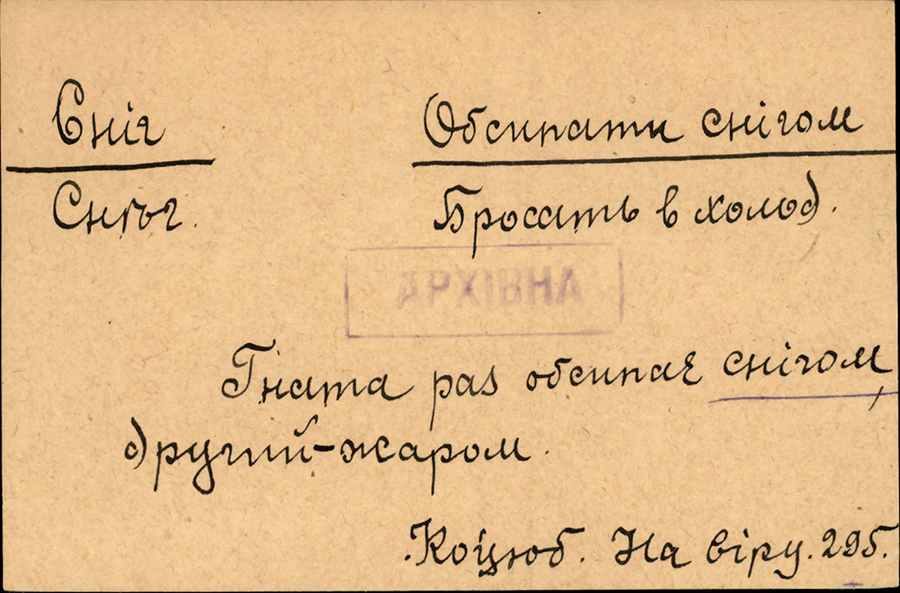 Сніг Обсипати снігом
Снѣг. Бросать в холод.
АРХІВНА
Гната раз обсипає снігом,
другий-жаром.
Коцюб. На віру. 295.